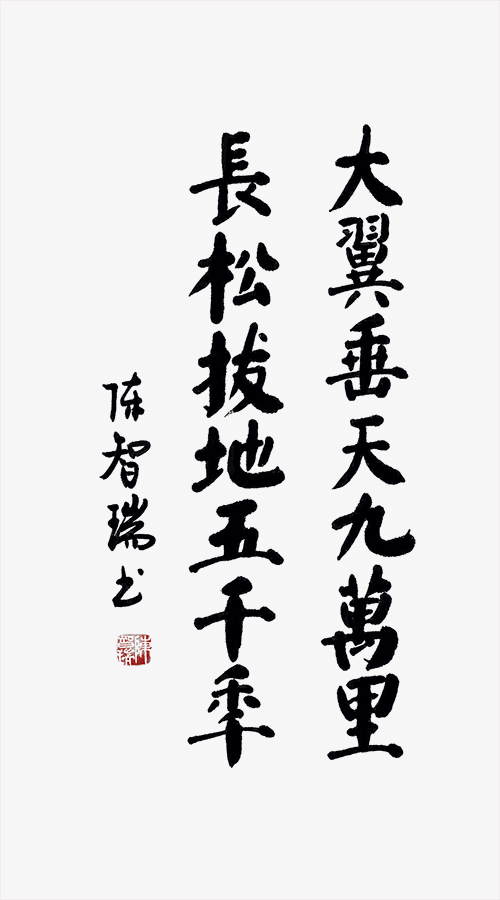 大翼垂天九萬里
長松拔地五千年
陈智瑞书